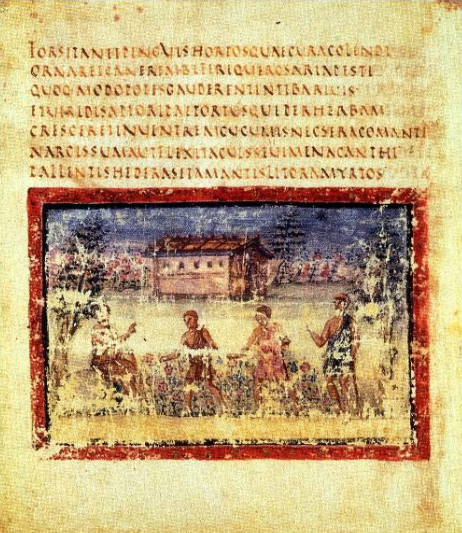 FORSITANETPINGVISHORTOSQVAECVRACOLENDI
ORNARETCANEREMBIFERIQVEROSARIAPESTI
QVOQMODOPOTISGAVDERENTINTIBARIVIS
ETVIRIDISAPIORIPAETORTVSQVEPERHERBAM
CRESCERETINVENTREMCVCVMISNECSERACOMANTI
NARCISSVMAVTFLEXITACVISSEVIMENACANTHI
PALLENTISHEDERASETAMANTISLITORAMYRTOS